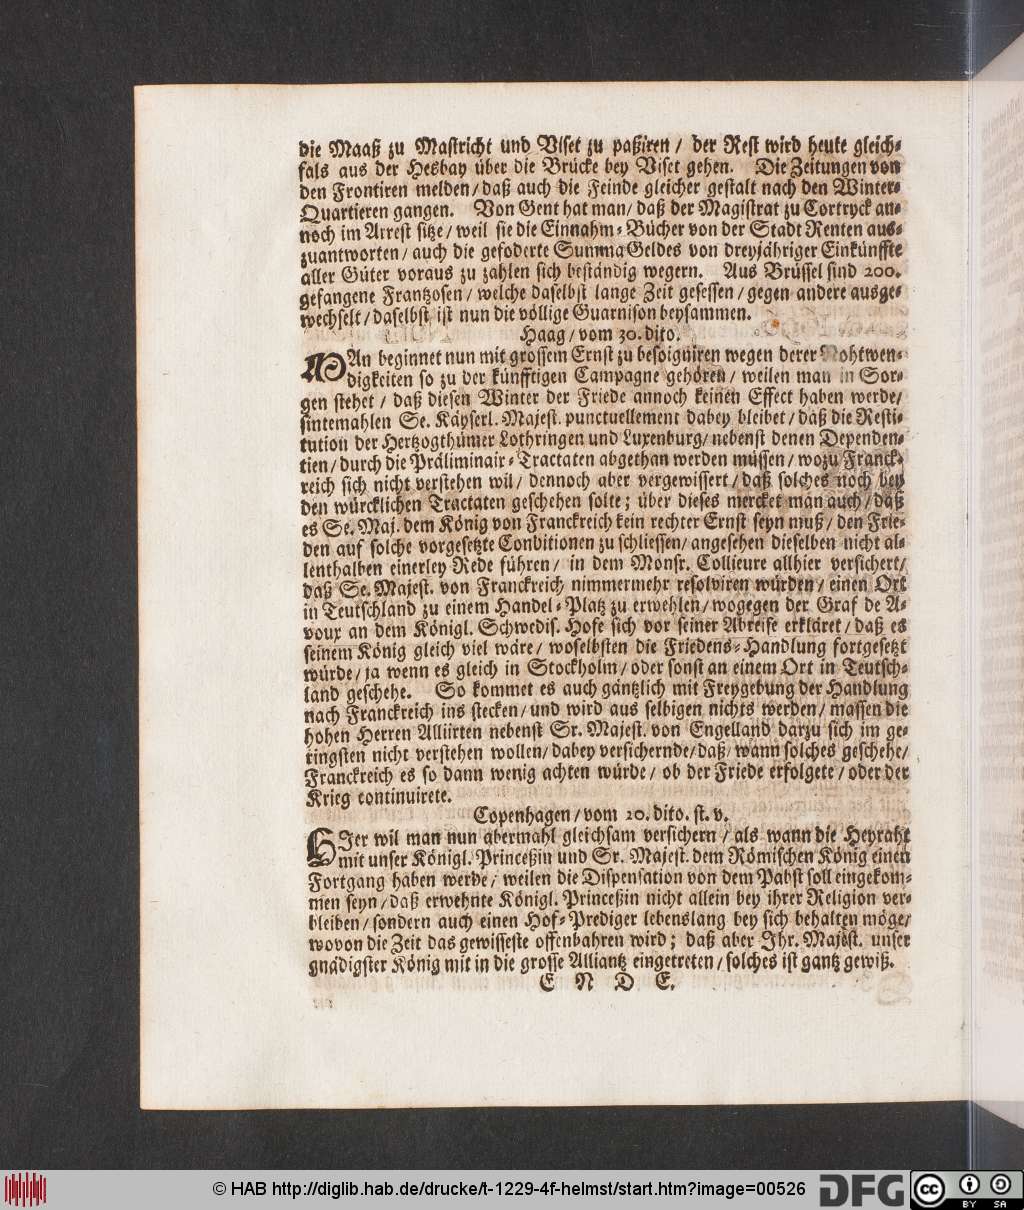 die Maaß zu Mastricht und Viset zu paßiren / der Rest wird heute gleich-
fals aus der Hesbay über die Brücke bey Viset gehen. Die Zeitungen von
den Frontiren melden / daß auch die Feinde gleicher gestalt nach den Winter-
Quartieren gangen. Von Gent hat man / daß der Magistrat zu Cortryck an-
noch im Arrest sitze / weil sie die Einnahm-Bücher von der Stadt Renten aus-
zuantworten / auch die gefoderte Summa Geldes von dreyjähriger Einkünffte
aller Güter voraus zu zahlen sich beständig wegern. Aus Brüssel sind 200.
gefangene Frantzosen / welche daselbst lange Zeit gesessen / gegen andere ausge-
wechselt / daselbst ist nun die völlige Guarnison beysammen.
Haag / vom 30. dito.
MAn beginnet nun mit grossem Ernst zu besoigniren wegen derer Nohtwen-
digkeiten so zu der künfftigen Campagne gehören / weilen man in Sor-
gen stehet / daß diesen Winter der Friede annoch keinen Effect haben werde /
sintemahlen Se. Käyserl. Majest. punctuellement dabey bleibet / daß die Resti-
tution der Hertzogthümer Lothringen und Luxenburg / nebenst denen Dependen-
tien / durch die Präliminair-Tractaten abgethan werden müssen / wozu Franck-
reich sich nicht verstehen wil / dennoch aber vergewissert / daß solches noch bey
den würcklichen Tractaten geschehen solte ; über dieses mercket man auch / daß
es Se. Maj. dem König von Franckreich kein rechter Ernst seyn muß / den Frie-
den auf solche vorgesetzte Conditionen zu schliessen / angesehen dieselben nicht al-
lenthalben einerley Rede führen / in dem Monsr. Collieure allhier versichert /
daß Se. Majest. von Franckreich nimmermehr resolviren würden / einen Ort
in Teutschland zu einem Handel-Platz zu erwehlen / wogegen der Graf de A-
voux an dem Königl. Schwedis. Hofe sich vor seiner Abreise erkläret / daß es
seinem König gleich viel wäre / woselbsten die Friedens-Handlung fortgesetzt
würde / ja wenn es gleich in Stockholm / oder sonst an einem Ort in Teutsch-
land geschehe. So kommet es auch gäntzlich mit Freygebung der Handlung
nach Franckreich ins stecken / und wird aus selbigen nichts werden / massen die
hohen Herren Alliirten nebenst Sr. Majest. von Engelland darzu sich im ge-
ringsten nicht verstehen wollen / dabey versichernde / daß / wann solches geschehe /
Franckreich es so dann wenig achten würde / ob der Friede erfolgete / oder der
Krieg continuirete.
Copenhagen / vom 20. dito. st. v.
HIer wil man nun abermahl gleichsam versichern / als wann die Heyraht
mit unser Königl. Princeßin und Sr. Majest. dem Römischen König einen
Fortgang haben werde / weilen die Dispensation von dem Pabst soll eingekom-
men seyn / daß erwehnte Königl. Princeßin nicht allein bey ihrer Religion ver-
bleiben / sondern auch einen Hof-Prediger lebenslang bey sich behalten möge /
wovon die Zeit das gewisseste offenbahren wird ; daß aber Ihr. Majest. unser
gnädigster König mit in die grosse Alliantz eingetreten / solches ist gantz gewiß.
E N D E.
© HAB http://diglib.hab.de/drucke/t-1229-4f-helmst/start.htm?image=00526
DFG
cc BY SA